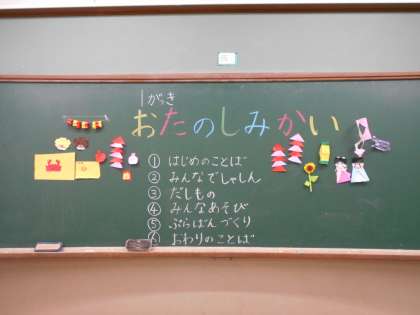 1がっき
おたのしみかい
① はじめのことば
② みんなでしゃしん
③ だしもの
④ みんなあそび
⑤ ぷらばんづくり
⑥ おわりのことば